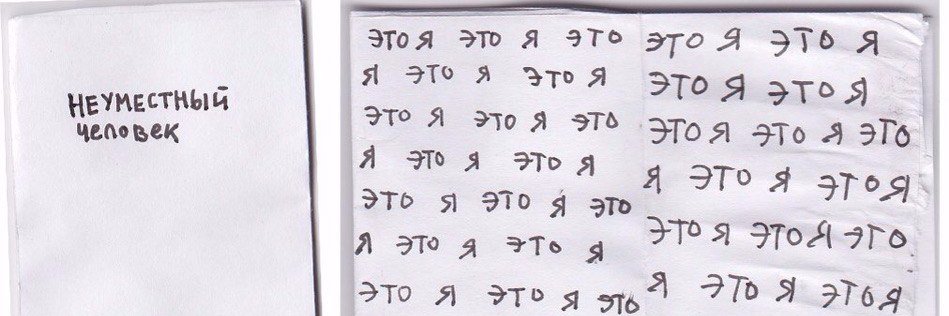 НЕУМЕСТНЫЙ
человек
ЭТО Я ЭТО Я ЭТО
Я ЭТО Я ЭТО Я
ЭТО Я ЭТО Я ЭТО
Я ЭТО Я ЭТО Я
ЭТО Я ЭТО Я ЭТО
Я ЭТО Я ЭТО Я
ЭТО Я ЭТО Я ЭТО
ЭТО Я ЭТО Я
ЭТО Я ЭТО Я
ЭТО Я ЭТО Я ЭТО
Я ЭТО Я ЭТО Я
ЭТО Я ЭТО Я ЭТО
Я ЭТО Я ЭТО Я